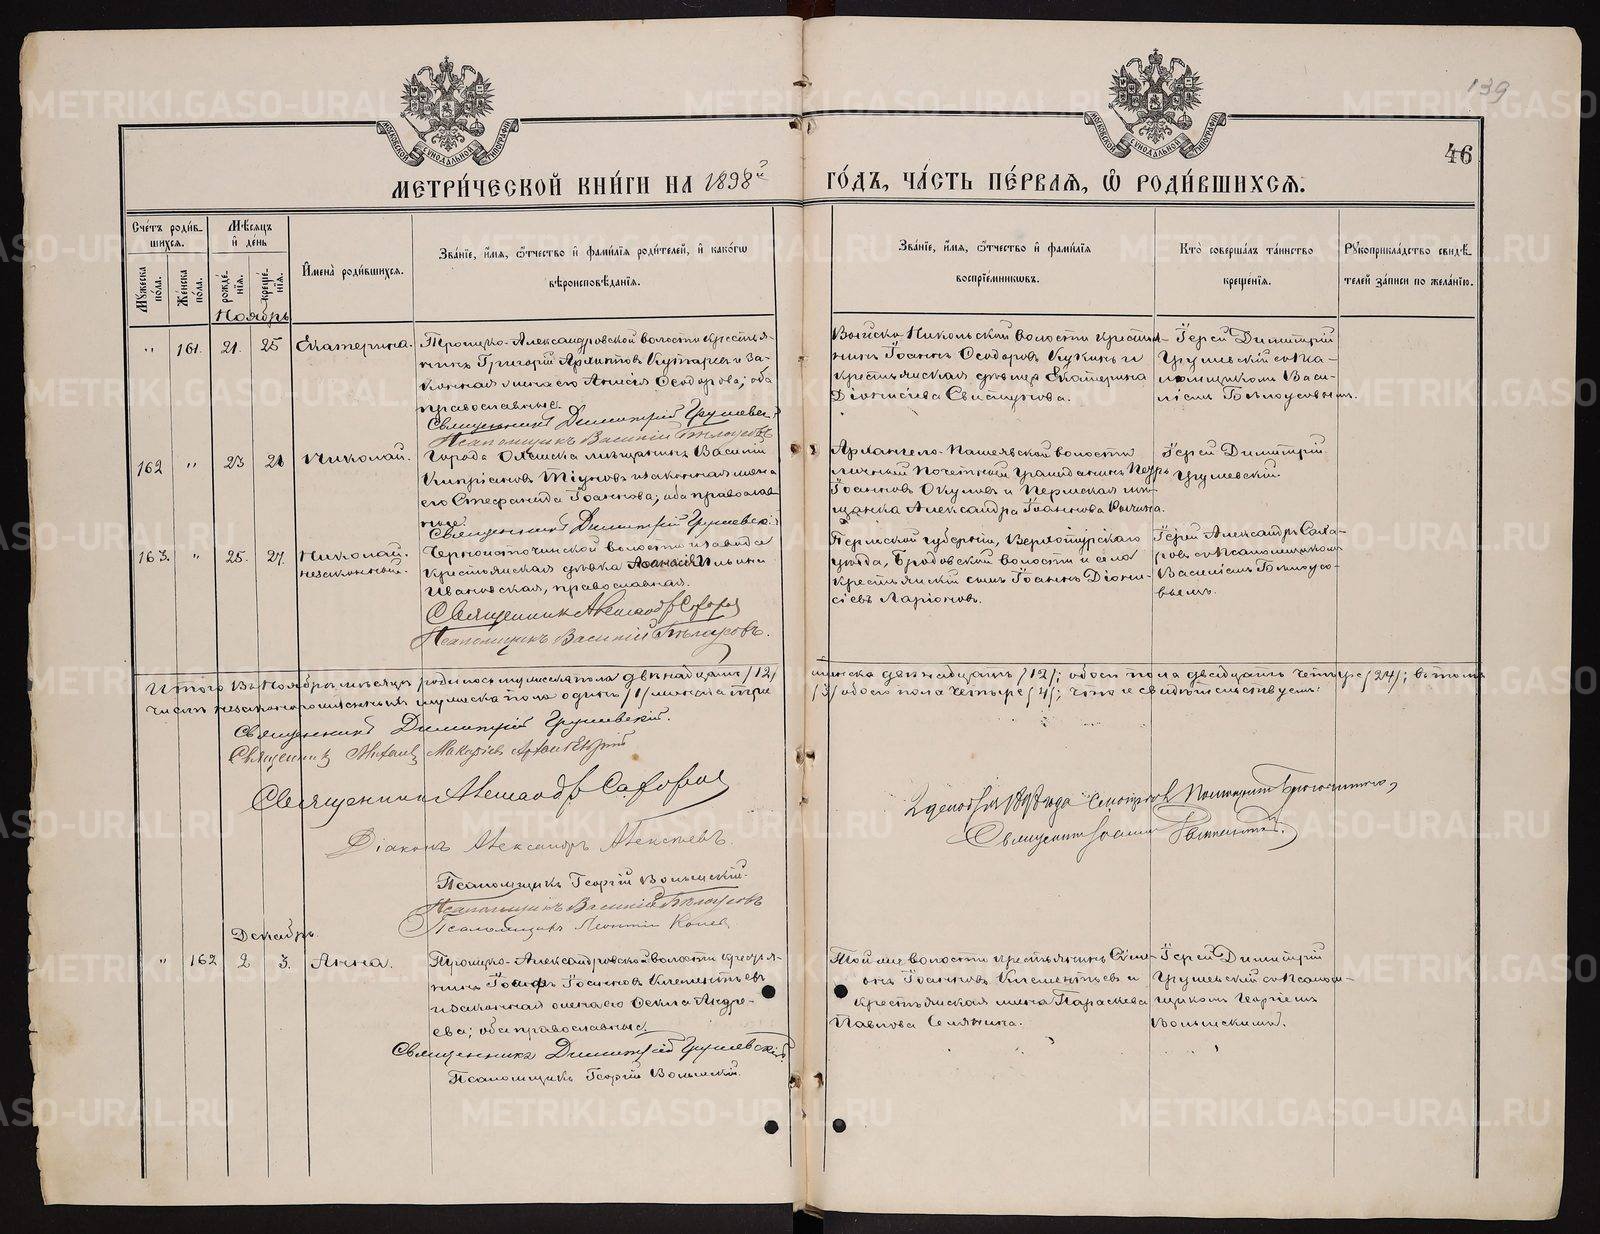 139
46
МОСКОВСКОЙ СѴНОДАЛЬНОЙ ТИПОГРАФІИ
МОСКОВСКОЙ СѴНОДАЛЬНОЙ ТИПОГРАФІИ
МЕТРИ́ЧЕСКОЙ КНИ́ГИ НА 1898й ГО́ДЪ, ЧА́СТЬ ПЕ́РВАЯ, Ѽ РОДИ́ВШИХСЯ.
Сче́тъ роди́в-
шихся.
Мѣ́сяцъ
и҆ де́нь
Му́жеска
по́ла.
Же́нска
по́ла.
рожде́-
нія.
креще́-
нія.
И҆мена̀ роди́вшихся.
Зва́ніе, и҆́мя, ѻ҆́тчество и҆ фами́лія роди́телей, и҆ како́гѡ
вѣроисповѣ́данія.
Зва́ніе, и҆́мя, ѻ҆́тчество и҆ фами́лія
воспріе́мникѡвъ.
Кто̀ соверша́лъ та́инство
креще́нія.
Рꙋкоприкла́дство свидѣ́-
телей за́писи по жела́нію.
Ноябрь
„ 161. 21. 25 Екатерина.
Троицко-Александровской волости крестья-
нинъ Григорій и за-
конная жена его Анисія Ѳеодорова; оба
православные.
Священникъ Димитрій Грушевскій
Псаломщикъ Василій Бѣлоусовъ
Никольской волости крестья-
нинъ Іоаннъ Ѳеодоровъ и
крестьянская дѣвица Екатерина
Діонисіева
Іерей Димитрій
Грушевскій съ Пса-
ломщикомъ Васи-
ліемъ Бѣлоусовымъ.
162 „ 23 Николай.
Города мѣщанинъ Василій
Кипріановъ и законная жена
его Стефанида Іоаннова; оба православ-
ные.
Священникъ Димитрій Грушевскій
Архангело-Пашійской волости
личный почетный гражданинъ Петръ
Іоанновъ Окуловъ и Пермская мѣ-
щанка Александра Іоаннова
Іерей Димитрій
Грушевскій
163. „ 25. 27. Николай.
незаконный.
Черноисточинской волости и завода
крестьянская дѣвка Ильина
Ивановская, православная.
Священникъ Александръ Сахаровъ
Псаломщикъ Василій Бѣлоусовъ.
Пермской губерніи, Верхотурскаго
уѣзда, Бродовской волости и села
крестьянскій сынъ Іоаннъ Діони-
сіевъ Ларіоновъ.
Іерей Александръ Саха-
ровъ съ Псаломщикомъ
Василіемъ Бѣлоусо-
вымъ.
Итого въ Ноябрѣ мѣсяцѣ родилось мужеска пола двѣнадцать /12/ женска двѣнадцать /12/; обоего пола двадцать четыре /24/; въ томъ
числѣ незаконнорожденныхъ мужеска пола одинъ /1/ женска три /3/ обоего пола четыре /4/; что и свидѣтельствуемъ:
Священникъ Димитрій Грушевскій.
Священникъ Михаилъ
Священникъ Александръ Сахаровъ
Діаконъ Александръ Алексѣевъ.
Псаломщикъ Георгій Вольскій.
Псаломщикъ Василій Бѣлоусовъ
Псаломщикъ Леонтій Коневъ
2 декабря 1898 года
Священникъ Іоаннъ
Декабрь.
„ 162 2 3. Анна.
Троицко-Александровской волости крестья-
нинъ Іосифъ Іоанновъ Клементьевъ
и законная жена его Ѳекла Андре-
ева; оба православные.
Священникъ Димитрій Грушевскій
Псаломщикъ Георгій Вольскій.
Той же волости крестьянинъ Симе-
онъ Іоанновъ Клементьевъ и
крестьянская жена Параскева
Павлова Семянина.
Іерей Димитрій
Грушевскій съ Псалом-
щикомъ Георгіемъ
Вольскимъ.
METRIKI.GASO-URAL.RU